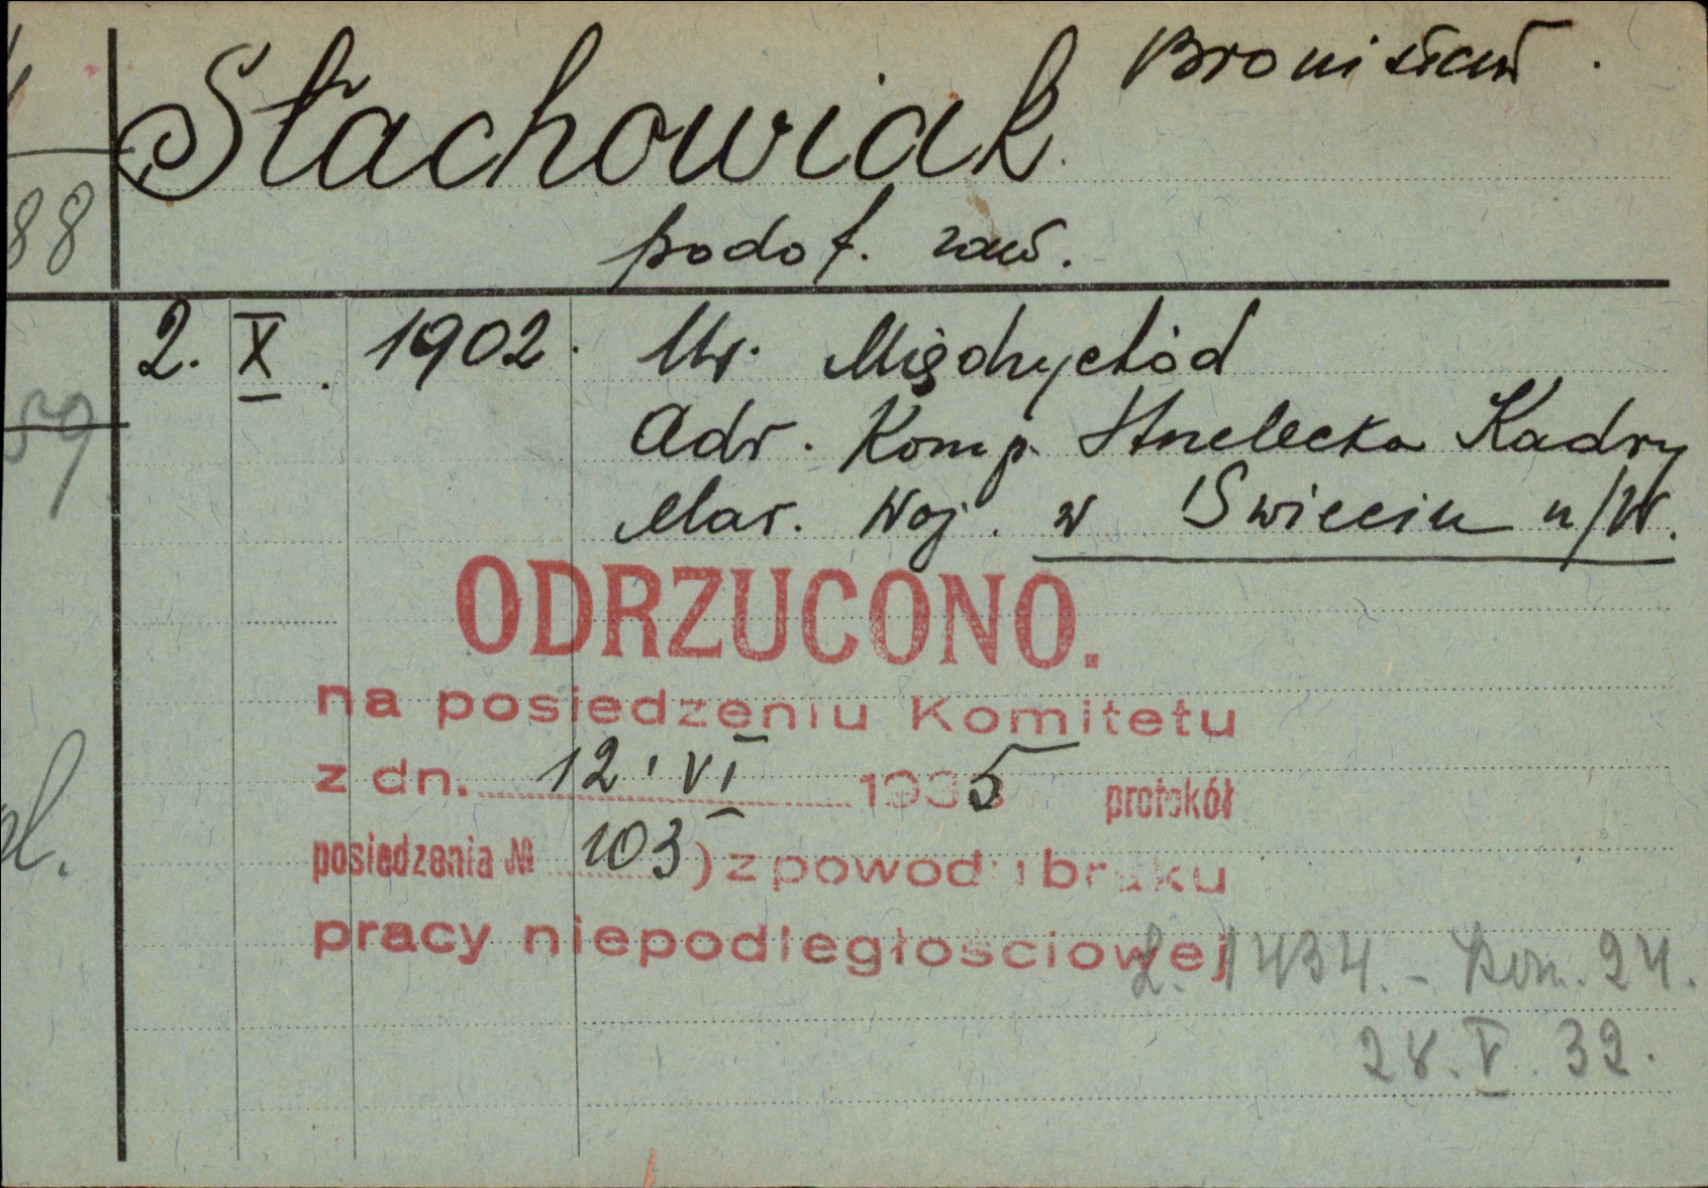 Stachowiak Bronisław.
88
podof. zaw.
2. X. 1902. Ur. Międzychód
59
Adr. Komp. Strzelecka Kadry
Mar. Woj. w Świeciu n/W.
ODRZUCONO.
na posiedzeniu Komitetu
z dn. 12. VI 1935 protokół
posiedzenia № 103) z powodu braku
pracy niepodległościowej
L. 1434. - Pom. 24.
28. V. 32.